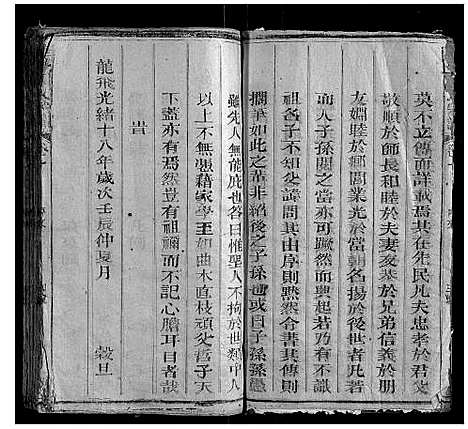 莫不立傳而詳載焉其在先民凡夫忠孝於君父
敬順於師長和睦於夫妻友恭於兄弟信義於朋
友婣睦於鄉閭業光於當朝名揚於後世者凡若
而人子孫聞之當亦可蹶然而興起若乃有不識
祖名子不知父諱問其由序則默然令書其傳則
擱筆如此之輩非紹後之子孫也或曰子孫孫愚
雖先人無能庇也答曰惟聖人不拘於世類中人
以上不無慿藉家學王如曲木直枝頑父哲子天
下蓋亦有焉然豈有祖禰而不記心膽耳目者哉
旹
龍飛光緒十八年歲次壬辰仲夏月 穀旦